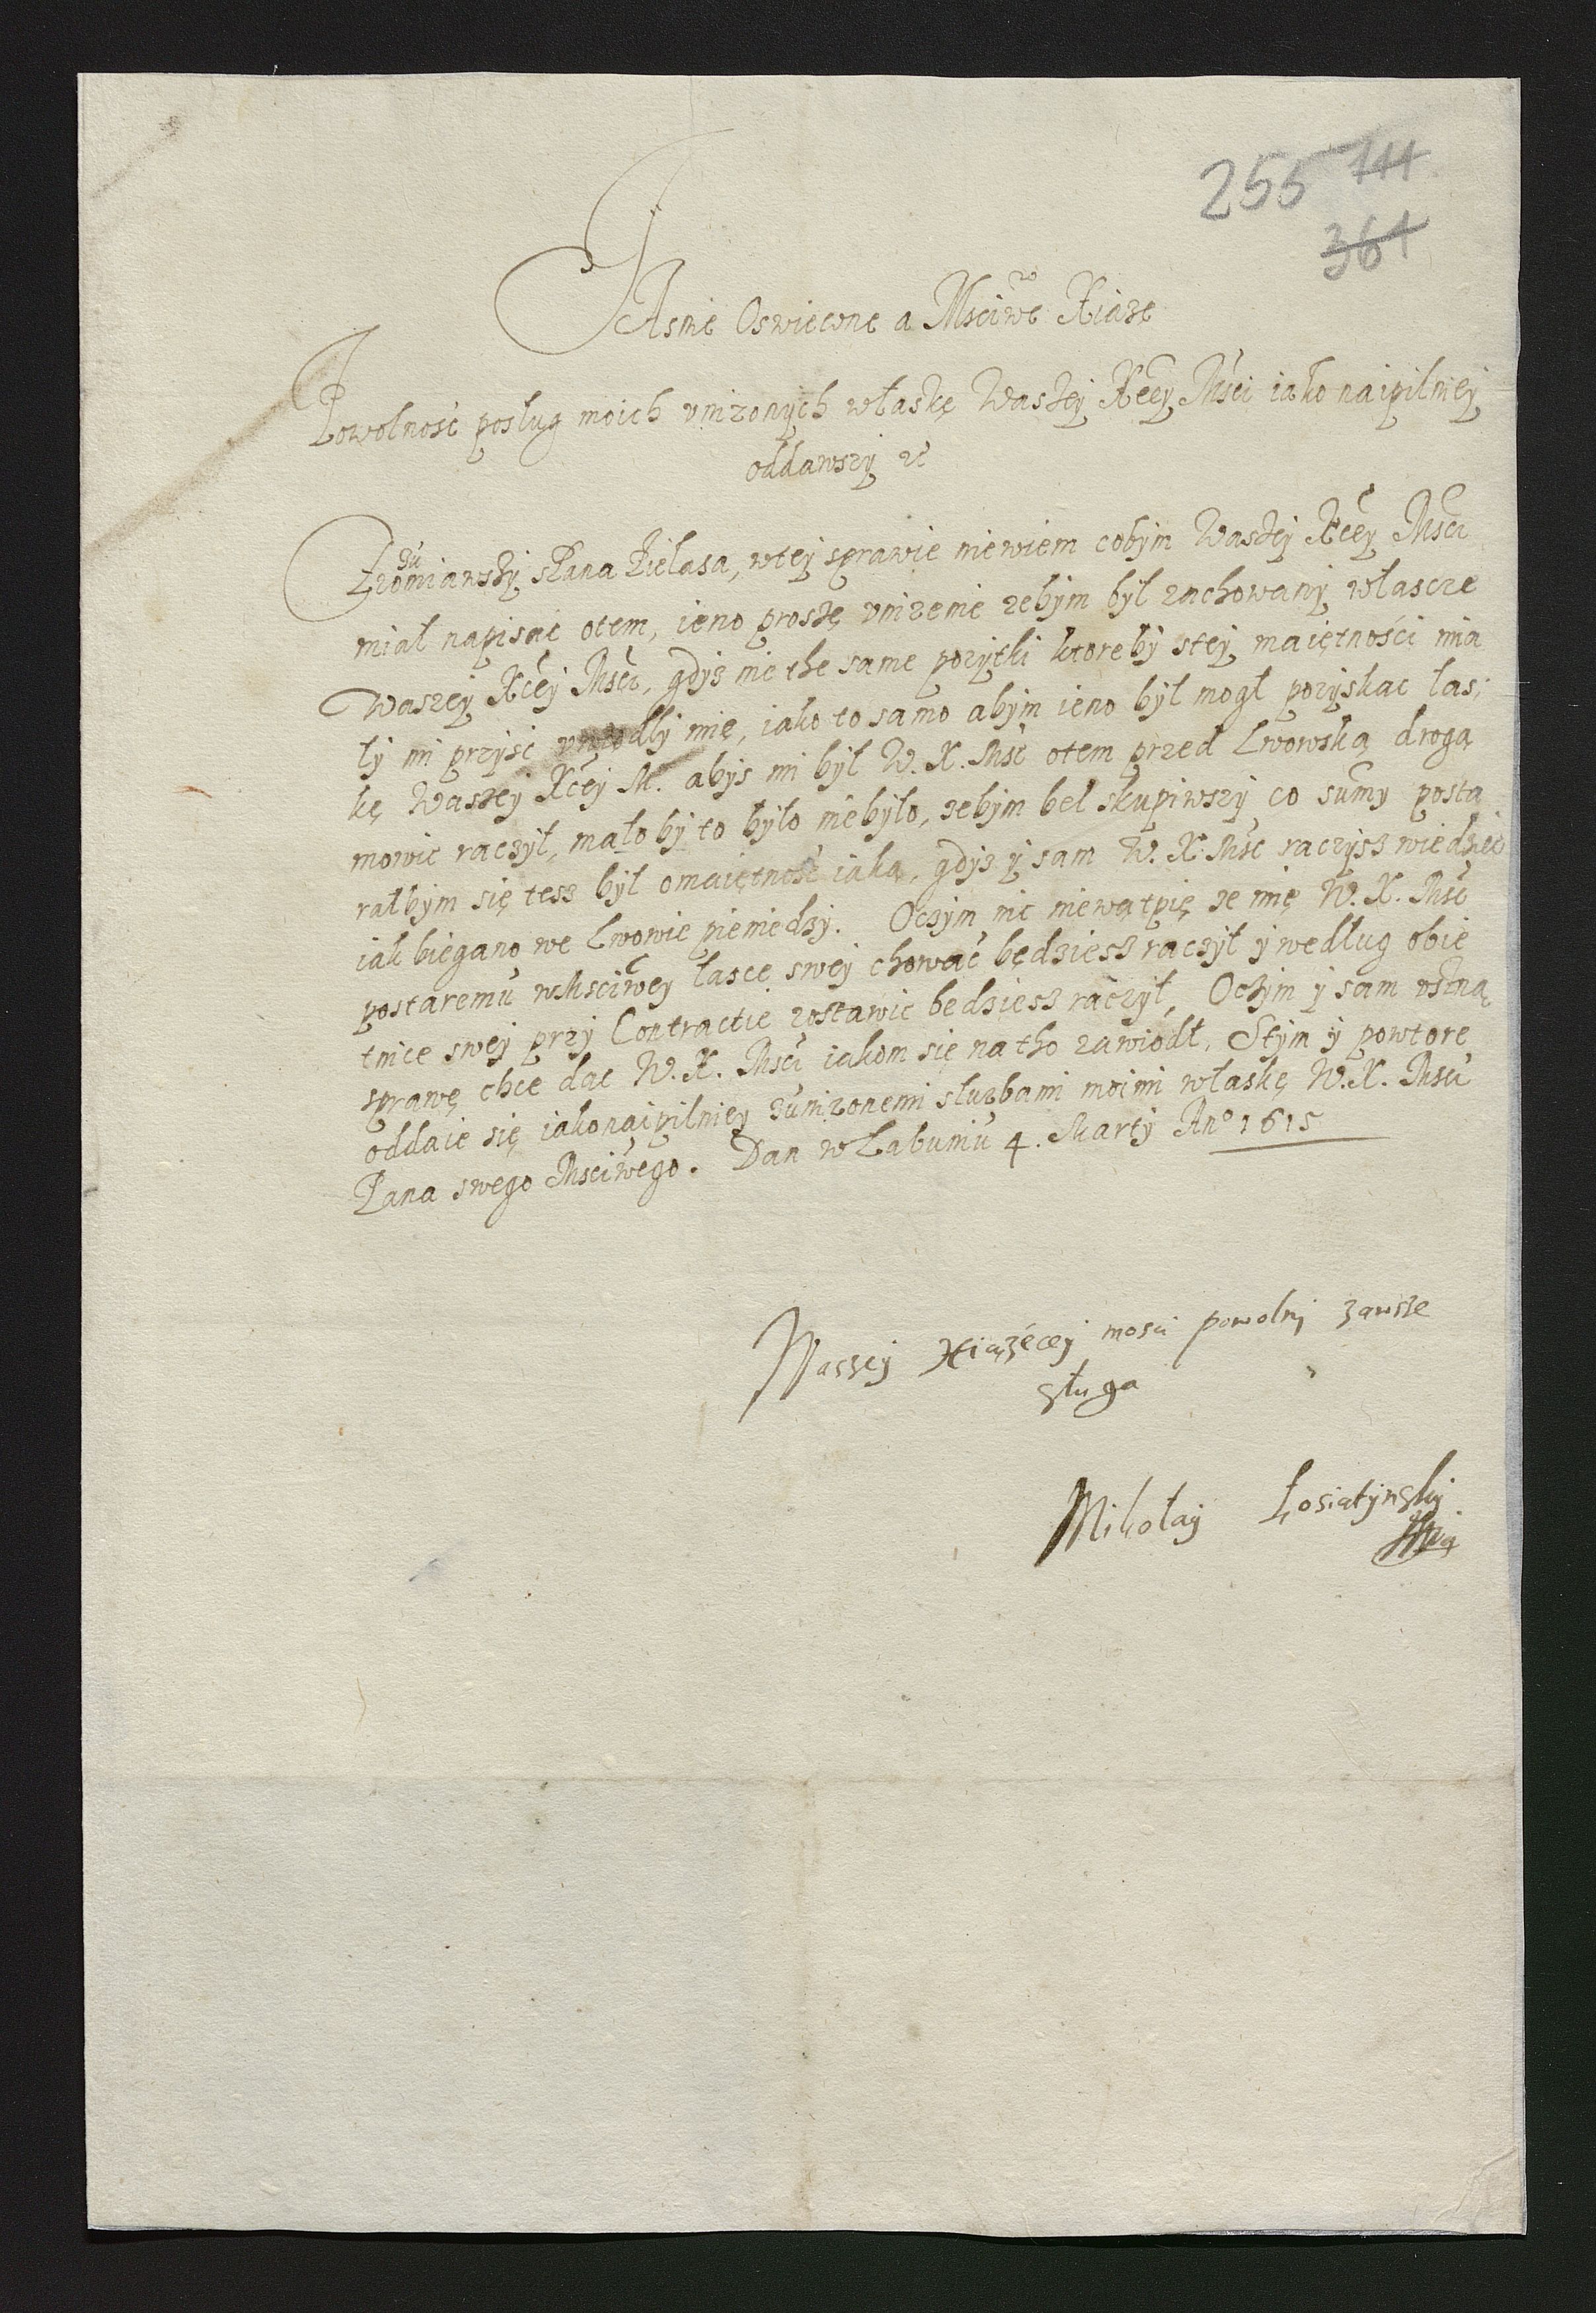 255 744
364
JAsnie Oswiecone a Msciwe Xiąze
Powolnosc poslug moich vnizonych właskę Waszej Xcey Msci iako naipilniey
oddawszy etc
Zrozumiawszy sPana Bielasa, wtej sprawie niewiem cobym Waszej Xcey Msci
miał napisac otem, ieno proszę vnizenie zebym był zachowany włascze
Waszej Xcej Msci, gdyz nie the same pozytki ktoreby stej maiętności mia
ły mi przysc vwiodły mię, iako to samo abym ieno był mogł pozyskac łas,
kę Waszej Xcej M. abys mi był W. X. Msc otem przed Lwowską drogą
mowic raczył, mało by to było niebyło, zebym beł skupiwszy co sumy posta
rałbym się tesz był omaiętność iaką, gdyz y sam W. X. Msc raczysz wiedzieć
iak biegano we Lwowie pieniedzy. Oczym nic niewątpię ze mię W. X. Msc
postaremu wMsciwey łasce swej chować będziesz raczył y według obie
tnice swej przy Contractie zostawic bedziesz raczył, Oczym y sam vstną
sprawę chce dac W. X. Msci iakom się na tho zawiodł. Stym y powtore
oddaie się iakonaipilniey zunizonemi słuzbami moimi właskę W. X. Msci
Pana swego Msciwego. Dan w Łabuniu 4. Marty Ano 1615
Waszey Xiązęcey mosci powolny zawsze
sługa
Mikołay Łosiatynsky
mpą